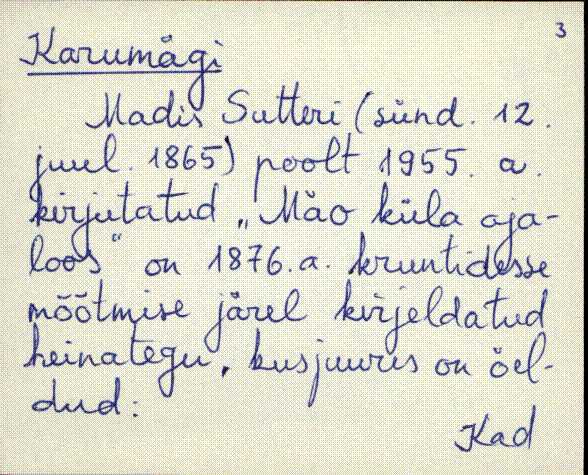 3
Karumägi
Madis Sutteri (sünd. 12.
juul. 1865) poolt 1955. a.
kirjutatud „Mäo küla aja-
loos" on 1876. a. kruntidesse
mõõtmise järel kirjeldatud
heinategu, kusjuures on öel-
dud:
Kad